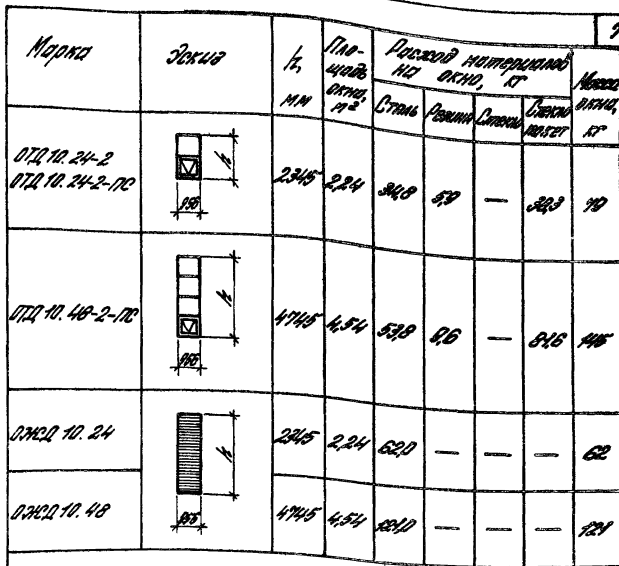 Марка Эскиз h, мм Площадь окна, м² Расход материалов на окно, кг Масса окна, кг
Сталь Резина Стекло Стеклопакет
ОТД 10.24-2
ОТД 10.24-2-ПС h 955 2345 2,24 34,8 5,9 — 79
ОТД 10.48-2-ПС h 955 4745 4,54 53,8 9,6 — 81,6 145
ОЖД 10.24 h 2345 2,24 62,0 — — — 62
ОЖД 10.48 955 4745 4,54 121,0 — — — 121